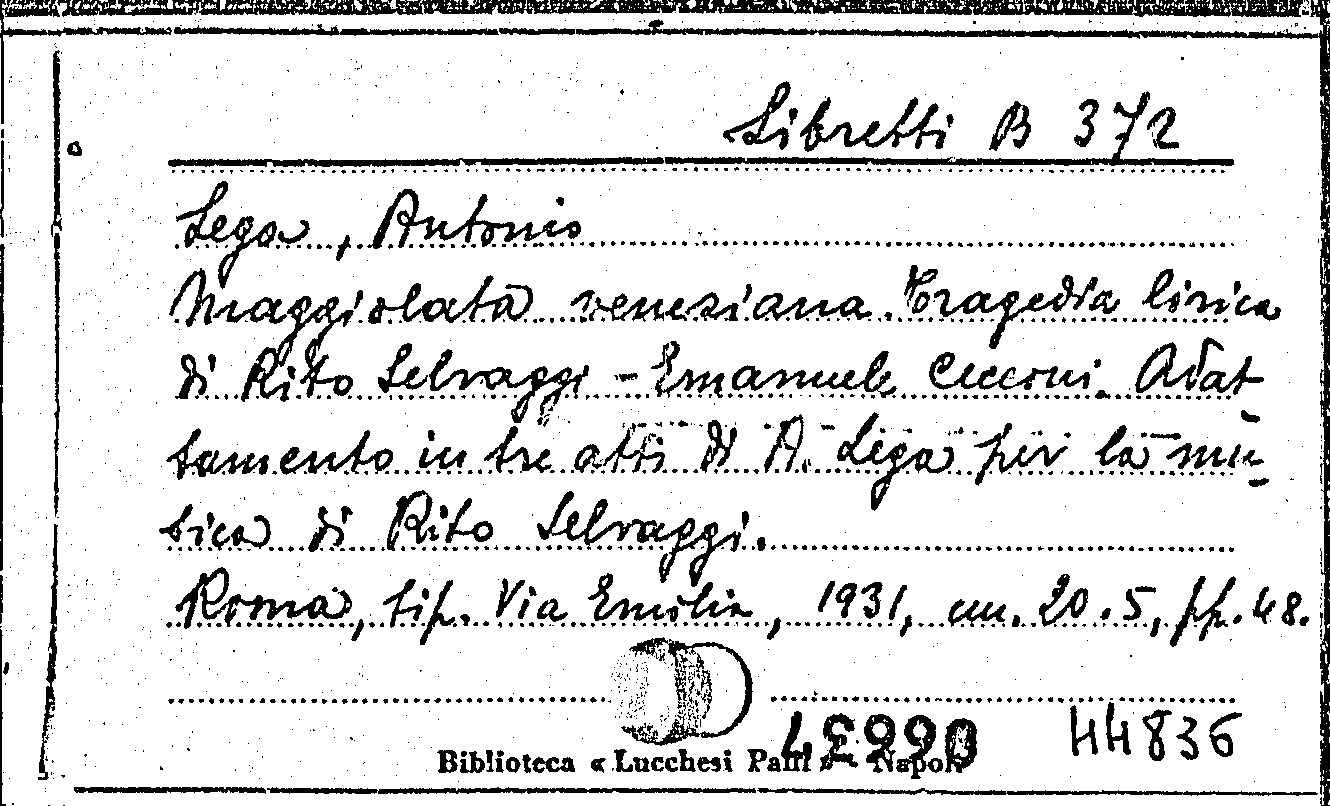 Libretti B 372
Lega, Antonio
Maggiolata veneziana. Tragedia lirica
di Rito Selvaggi - Emanuele Cecconi. Adat
tamento in tre atti di A. Lega per la mu-
sica di Rito Selvaggi.
Roma, tip. Via Emilia, 1931, cm. 20.5, pp. 48.
44836
Biblioteca « Lucchesi Palli » - Napoli